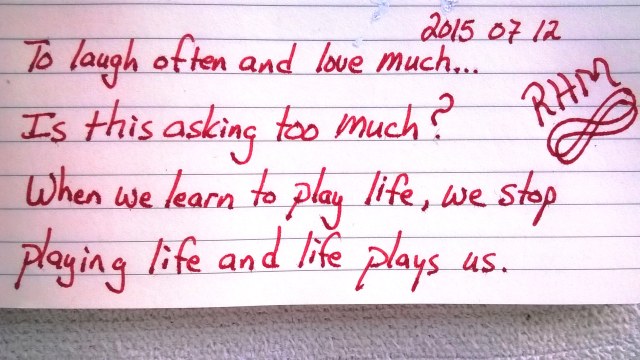 2015 07 12
To laugh often and love much...
RHM
Is this asking too much?
When we learn to play life, we stop
playing life and life plays us.